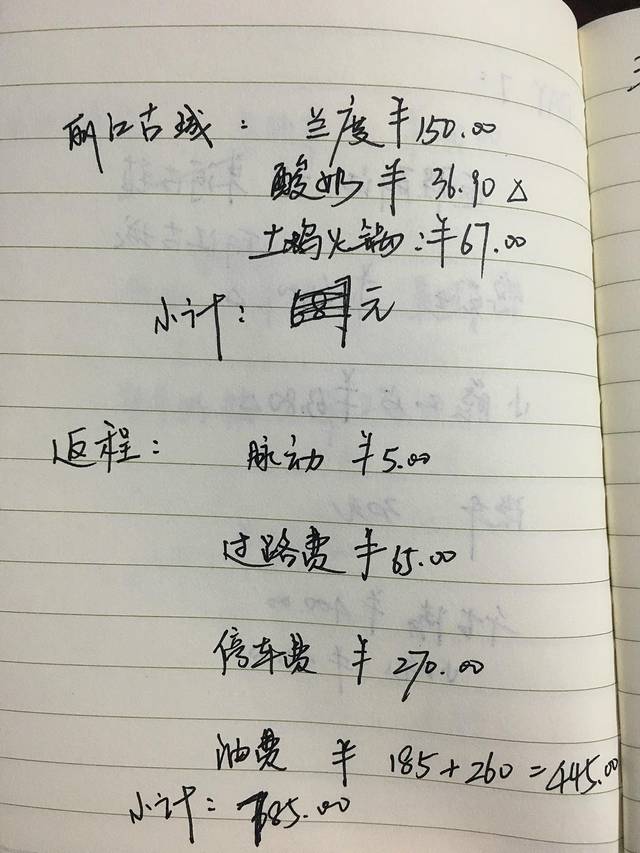 丽江古城： 兰度 ¥150.00
酸奶 ¥ 36.90 △
土鸡火锅：¥67.00
小计： 元
返程： 脉动 ¥5.00
过路费 ¥65.00
停车费 ¥ 270.00
油费 ¥ 185+260=445.00
小计：785.00